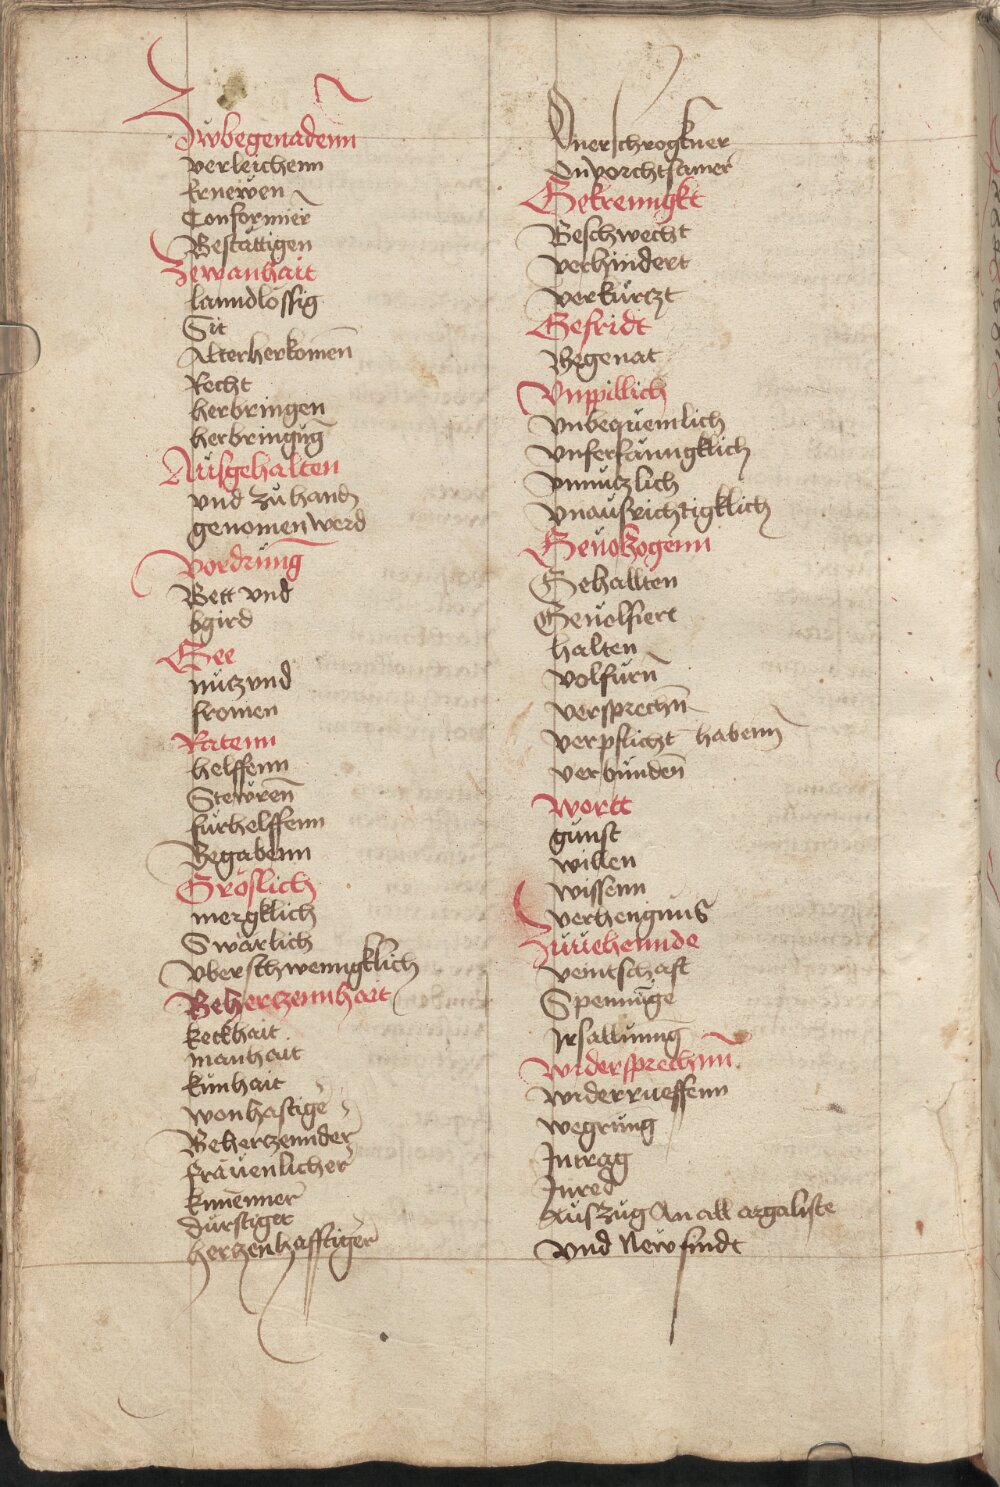 Zwbegenadenn
verleichenn
Ernewen
Conformier
Bestättigen
Gewanhait
lanndlössig
Sit
Alterherkomen̄
Recht
herbringen
herbringūg
Ausgehalten
vnd zu hand
genomen werd
Vordrung
Bett vnd
bgird
Gee
nutz vnd
fromen
Ratenn
helffenn
Stewren̄
furhelffenn
Begabenn
Gröslich
mergklich
Swärlich
vberschwenngklich
Behertzennhait
keckhait
manhait
kunhait
wonhaftige
Behertzennder
fräuenlicher
kunenner
dürstiger
hertzenhafftiger
Vnerschrogkner
Vnvorchtsamer
Gekrenngkt
Beschwecht
verhindert
verkürtzt
Gefridt
Begenat
Vnpillich
vnbequemlich
vnferfänngklich
vnnützlich
vnaufrichtigklich
Geuolzogenn
Gehallten
Geuolfiert
halten
volfurn̄
versprechn̄
verpflicht habenn
verbunden̄
Wortt
gunst
willen
wissenn
verhengnus
Zuuehennde
veintschaft
Spennūge
Irsallnung
Widersprechnn̄
widerrueffenn
wegrung
Intrag
Inred
Auszug An all argaliste
vnd New findt